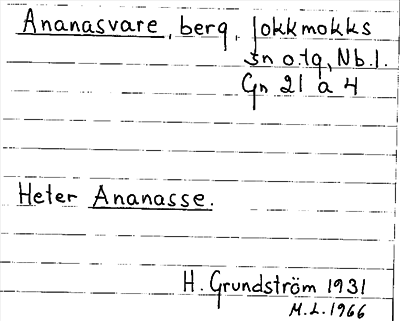 Ananasvare, berg, Jokkmokks
sn o. tg, Nb.l.
Gn 21 a 4
Heter Ananasse.
H. Grundström 1931
M.L. 1966